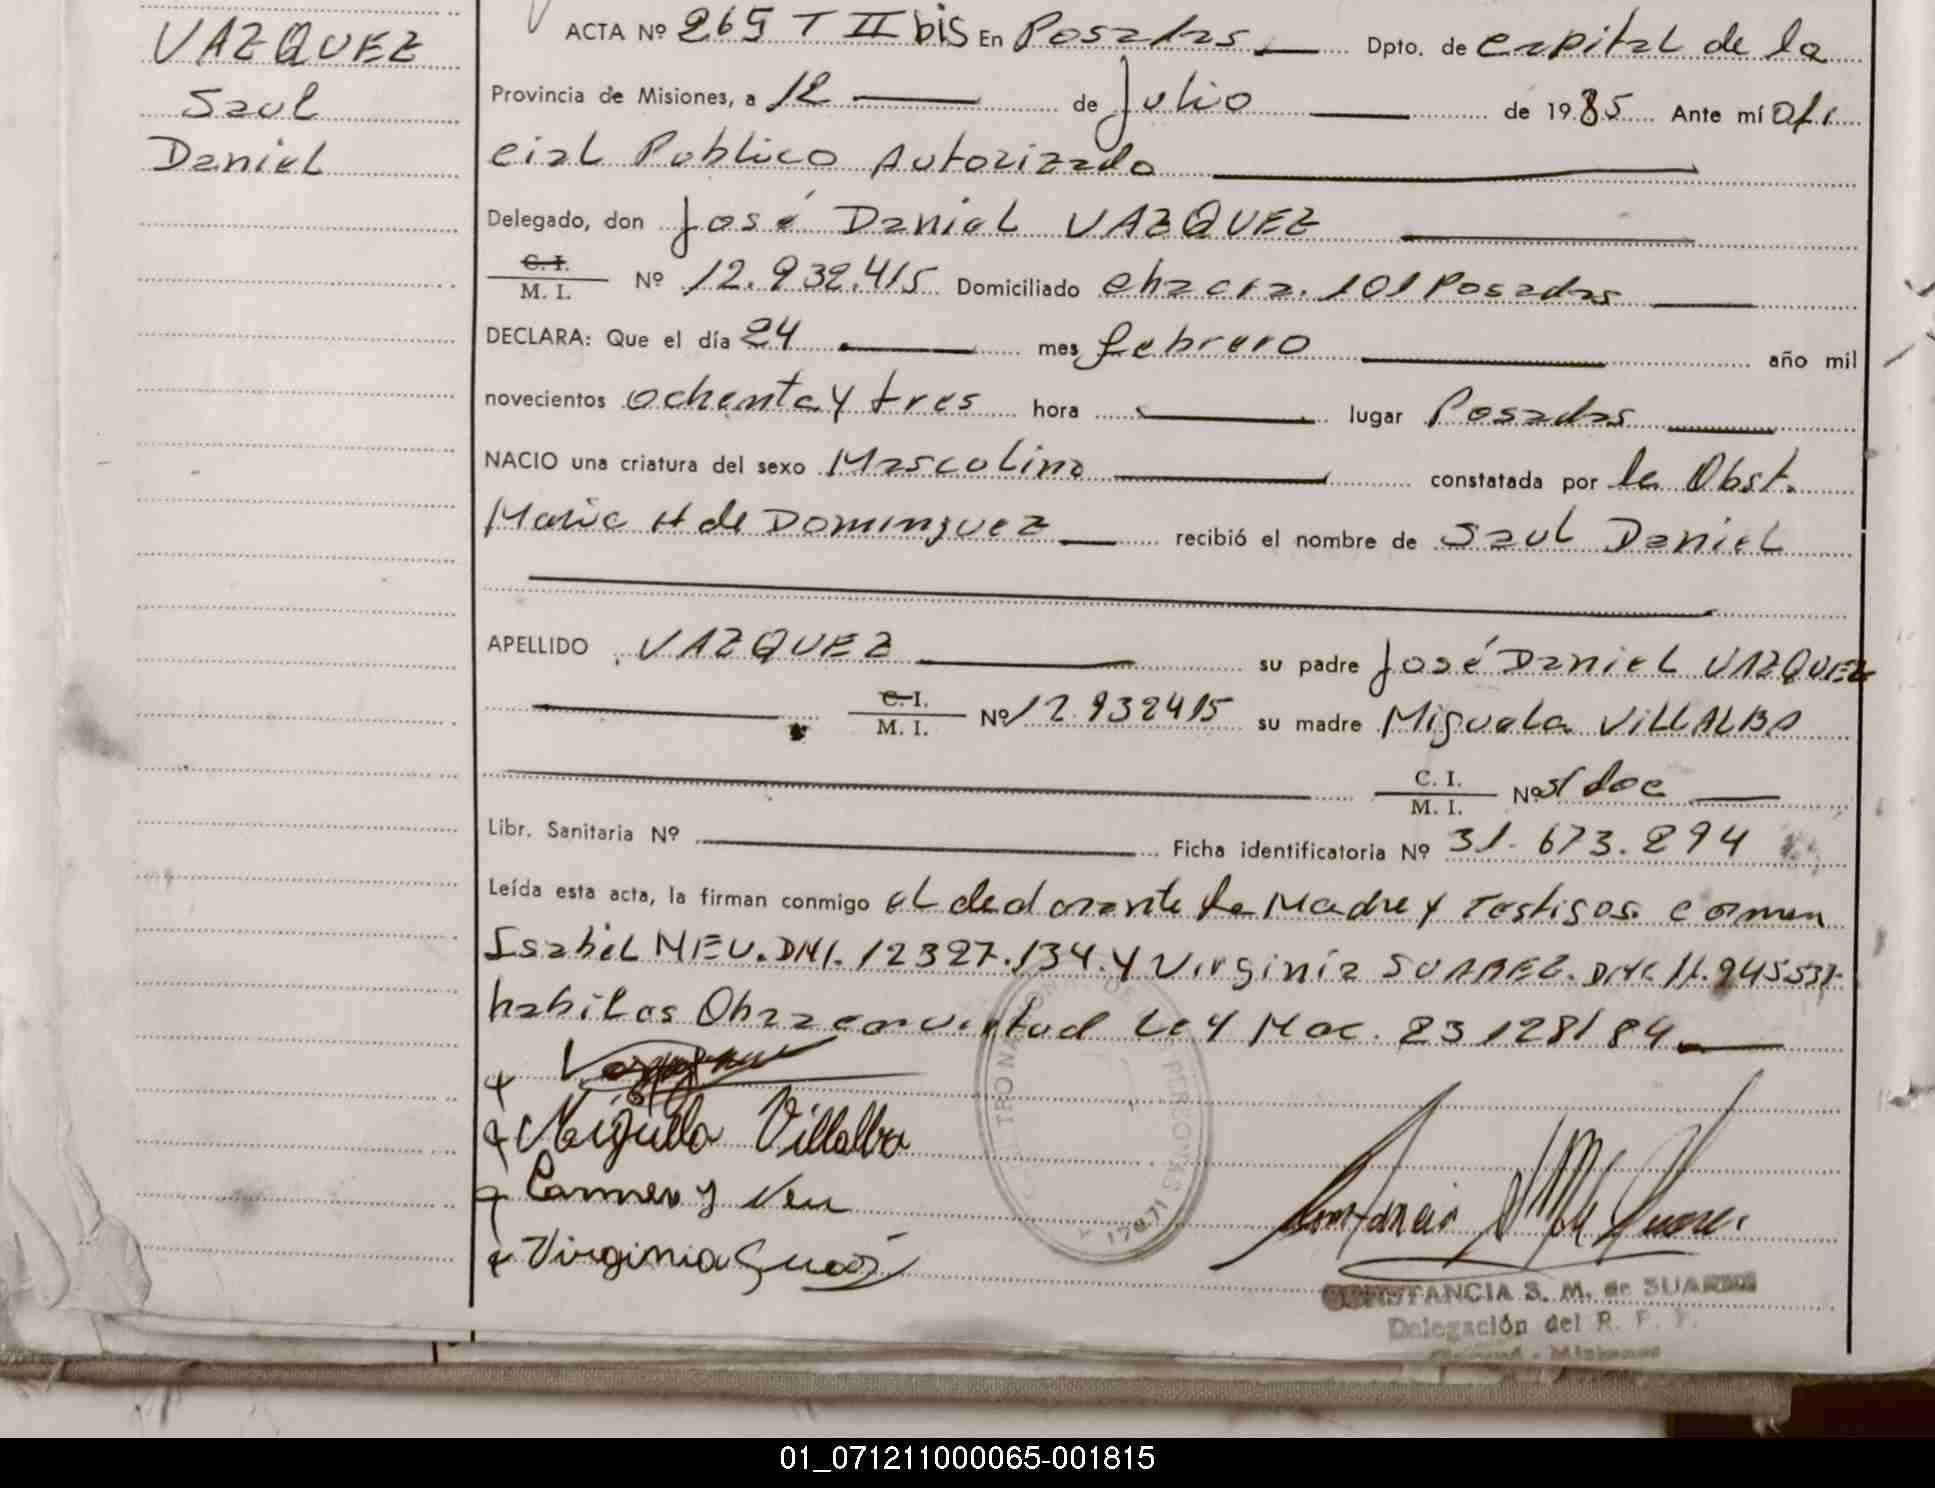 VAZQUEZ
Saul
Daniel
ACTA Nº 265 T II bis En Posadas Dpto. de Capital de la
Provincia de Misiones, a 12 de Julio de 1985 Ante mí Ofi
cial Publico Autorizado
Delegado, don José Daniel VAZQUEZ
C. I.
M. I. Nº 12.932.415 Domiciliado Chacra. 101 Posadas
DECLARA: Que el día 24 mes febrero año mil
novecientos ochenta y tres hora lugar Posadas
NACIO una criatura del sexo Masculino constatada por la Obst.
Maria H de DOMINGUEZ recibió el nombre de Saul Daniel
APELLIDO VAZQUEZ su padre José Daniel VAZQUEZ
C. I.
M. I. Nº 12.932415 su madre Miguela VILLALBA
C. I.
M. I. Nº s/doc
Libr. Sanitaria Nº Ficha identificatoria Nº 31.673.294
Leída esta acta, la firman conmigo el declarante la Madre y Testigos. Carmen
Isabel NEU. DNI. 12327.134. Y Virginia SUAREZ. DNI. 11.945537
habiles Obra en virtud Ley Nac. 23128/84
Miguela Villalba
Carmen Y Neu
Virginia Suarez
CONSTANCIA S. M. de SUAREZ
Delegación del R. P. P.
01_071211000065-001815